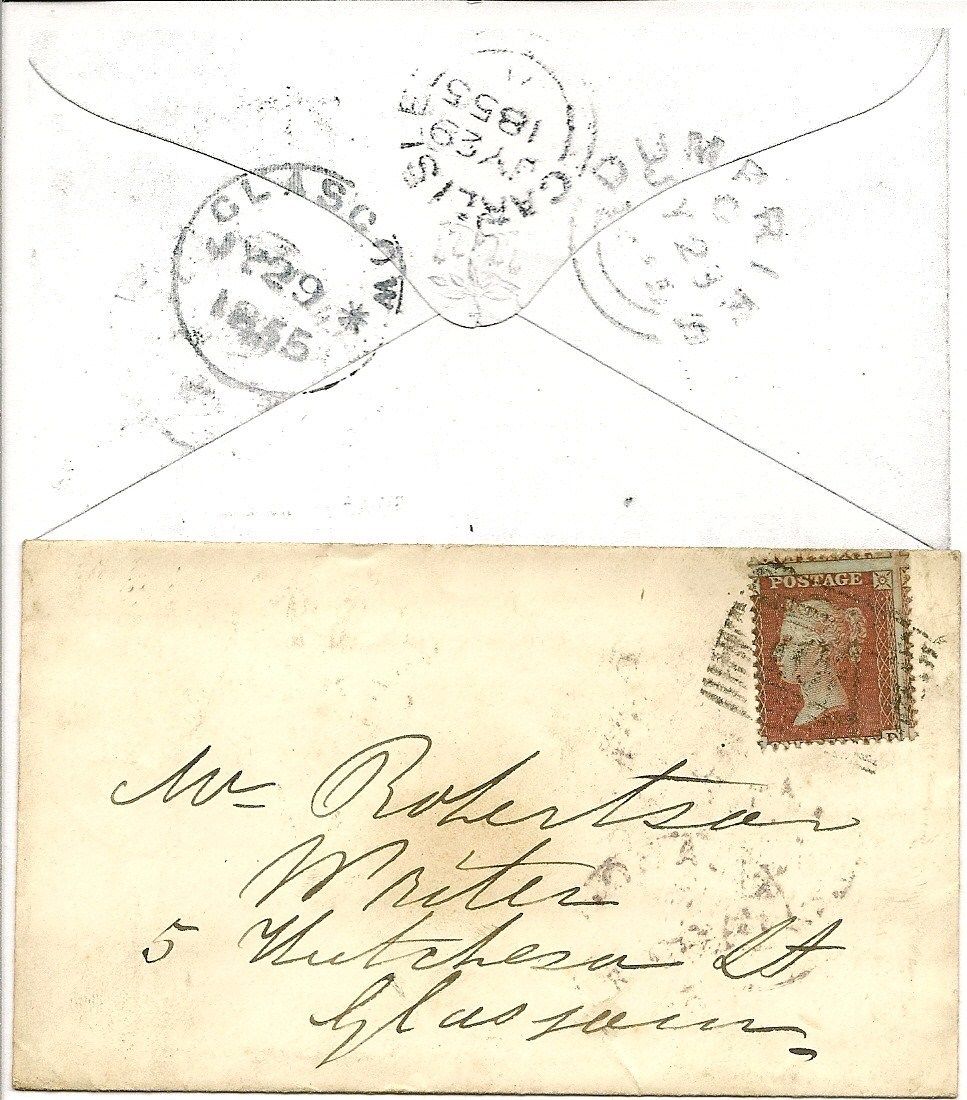 CARLISLE
JY 29
1855
GLASGOW
JY 29
1855
*
POSTAGE
Mr Robertson
Writer
5 Hutcheson St
Glasgow